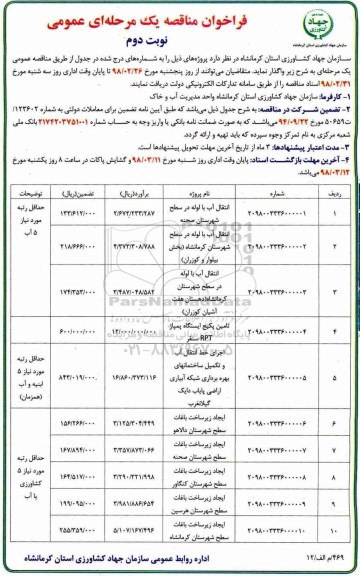 فراخوان مناقصه یک مرحله‌ای عمومی
نوبت دوم
جهاد کشاورزی
سازمان جهاد کشاورزی استان کرمانشاه
سازمان جهاد کشاورزی استان کرمانشاه در نظر دارد پروژه‌های ذیل را به شماره‌های درج شده در جدول از طریق مناقصه عمومی
یک مرحله‌ای به شرح زیر واگذار نماید. متقاضیان می‌توانند از روز پنجشنبه مورخ ۹۸/۰۲/۲۶ تا پایان وقت اداری روز سه شنبه مورخ
۹۸/۰۲/۳۱ اسناد مناقصه را از طریق سامانه تدارکات الکترونیکی دولت دریافت نمایند.
۱- کارفرما: سازمان جهاد کشاورزی استان کرمانشاه واحد مدیریت آب و خاک
۲- تضمین شرکت در مناقصه: به شرح جدول ذیل می‌باشد که طبق آیین نامه تضمین برای معاملات دولتی به شماره ۱۲۳۴۰۲/
ت۵۰۶۵۹ مورخ ۹۴/۰۹/۲۲ می‌باشد که به صورت ضمانت نامه بانکی یا واریز وجه به حساب شماره ۲۱۷۴۲۰۳۷۵۱۰۰۱ بانک ملی
شعبه مرکزی به نام تمرکز وجوه سپرده که باید تهیه و ارائه گردد.
۳- مدت اعتبار پیشنهادها: ۳ ماه از تاریخ آخرین مهلت تحویل پیشنهادها است.
۴- آخرین مهلت بازگشت اسناد: پایان وقت اداری روز شنبه مورخ ۹۸/۰۳/۱۱ و گشایش پاکات در ساعت ۸ روز یکشنبه مورخ
۹۸/۰۳/۱۲ می‌باشد.
ردیف شماره نام پروژه برآورد(ریال) تضمین(ریال) توضیحات
۱ ۲۰۹۸۰۰۳۳۳۶۰۰۰۰۰۱ انتقال آب با لوله در سطح شهرستان صحنه ۲/۶۷۲/۲۳۳/۲۸۷ ۱۳۳/۶۱۲/۰۰۰ حداقل رتبه مورد نیاز ۵ آب
۲ ۲۰۹۸۰۰۳۳۳۶۰۰۰۰۰۲ انتقال آب با لوله در سطح شهرستان کرمانشاه (بخش بیلوار و کوزران) ۴/۳۷۳/۳۰۸/۷۸۸ ۲۱۸/۶۶۶/۰۰۰
۳ ۲۰۹۸۰۰۳۳۳۶۰۰۰۰۰۳ انتقال آب با لوله در سطح شهرستان کرمانشاه(دهستان هفت آشیان کوزران) ۳/۴۸۷/۰۴۸/۵۸۴ ۱۷۴/۳۵۳/۰۰۰
۴ ۲۰۹۸۰۰۳۳۳۶۰۰۰۰۰۴ تامین پکیج ایستگاه پمپاژ RPT سنقر ۱۲/۰۰۰/۰۰۰/۰۰۰ ۶۰۰/۰۰۰/۰۰۰
۵ ۲۰۹۸۰۰۳۳۳۶۰۰۰۰۰۵ اجرای خط انتقال آب و تکمیل ساختمانهای بهره برداری شبکه آبیاری اراضی پایاب دایک گیلانغرب ۱۶/۸۶۰/۳۷۳/۱۱۶ ۸۴۳/۰۱۹/۰۰۰ حداقل رتبه مورد نیاز ۵ ابنیه و آب (همزمان)
۶ ۲۰۹۸۰۰۳۳۳۶۰۰۰۰۰۶ ایجاد زیرساخت باغات سطح شهرستان دالاهو ۳/۱۲۵/۳۰۴/۴۴۹ ۱۵۶/۲۶۶/۰۰۰ حداقل رتبه مورد نیاز ۵ کشاورزی یا آب
۷ ۲۰۹۸۰۰۳۳۳۶۰۰۰۰۰۷ ایجاد زیرساخت باغات سطح شهرستان صحنه ۳/۳۵۷/۸۷۳/۰۶۶ ۱۶۷/۸۹۴/۰۰۰
۸ ۲۰۹۸۰۰۳۳۳۶۰۰۰۰۰۸ ایجاد زیرساخت باغات سطح شهرستان کنگاور ۳/۲۹۰/۳۲۱/۹۹۸ ۱۶۴/۵۱۷/۰۰۰
۹ ۲۰۹۸۰۰۳۳۳۶۰۰۰۰۰۹ ایجاد زیرساخت باغات سطح شهرستان هرسین ۳/۹۸۱/۸۸۶/۶۵۴ ۱۹۹/۰۹۵/۰۰۰
۱۰ ۲۰۹۸۰۰۳۳۳۶۰۰۰۰۱۰ ایجاد زیرساخت باغات سطح شهرستان کرمانشاه ۵/۱۰۷/۱۶۷/۴۹۶ ۲۵۵/۳۵۹/۰۰۰
ParsNamadData
۰۲۱-۸۸۳۴۹۶۷۰-۵
۴۶۹/م الف/۱۲
اداره روابط عمومی سازمان جهاد کشاورزی استان کرمانشاه